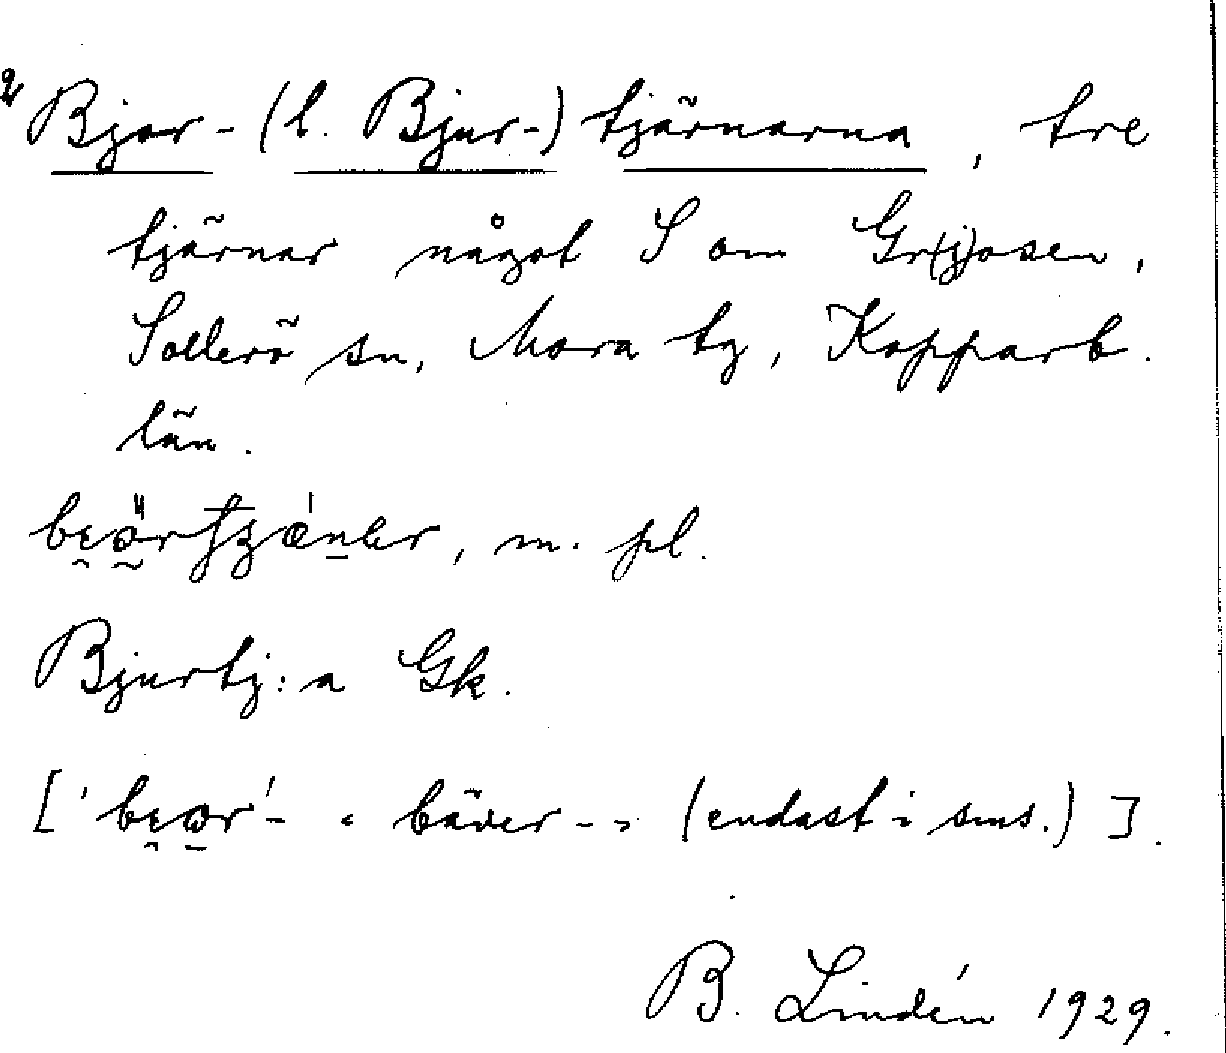 Bjor- (l. Bjur-) tjärnarna, tre
tjärnar något S om Gr(j)osen,
Sollerö sn, Mora tg, Kopparb.
län.
m. pl.
Bjurtj:a Gk.
['be̯o̱r'- « bäver- » (endast i sms.)].
B. Lindén 1929.